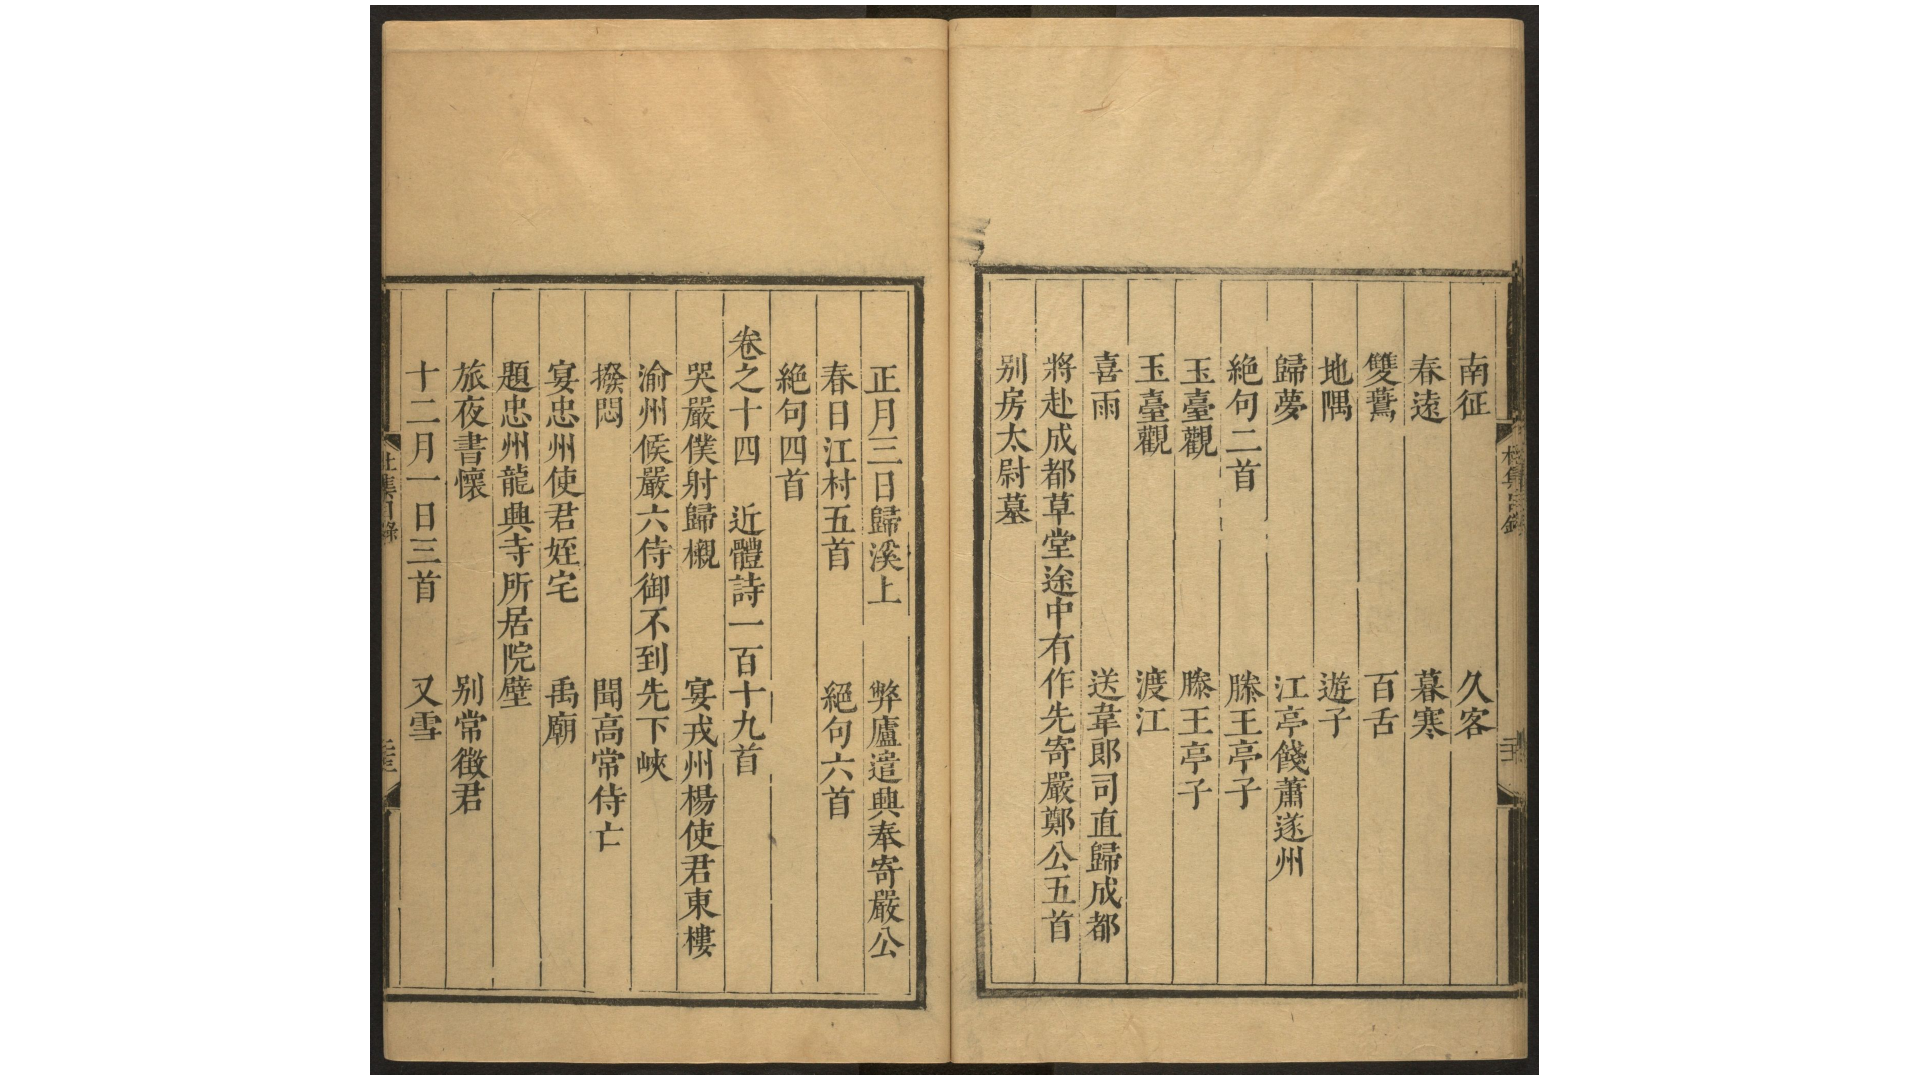 南征　久客
春遠　暮寒
雙鷰　百舌
地隅　遊子
歸夢　江亭餞蕭遂州
絶句二首　滕王亭子
玉臺觀　滕王亭子
玉臺觀　渡江
喜雨　送韋郎司直歸成都
將赴成都草堂途中有作先寄嚴鄭公五首
别房太尉墓
正月三日歸溪上　弊廬遣興奉寄嚴公
春日江村五首　絕句六首
絶句四首
卷之十四　近體詩一百十九首
哭嚴僕射歸櫬　宴戎州楊使君東樓
渝州候嚴六侍御不到先下峽
撥悶　聞高常侍亡
宴忠州使君姪宅　禹廟
題忠州龍興寺所居院壁
旅夜書懷　别常徵君
十二月一日三首　又雪
杜集目錄